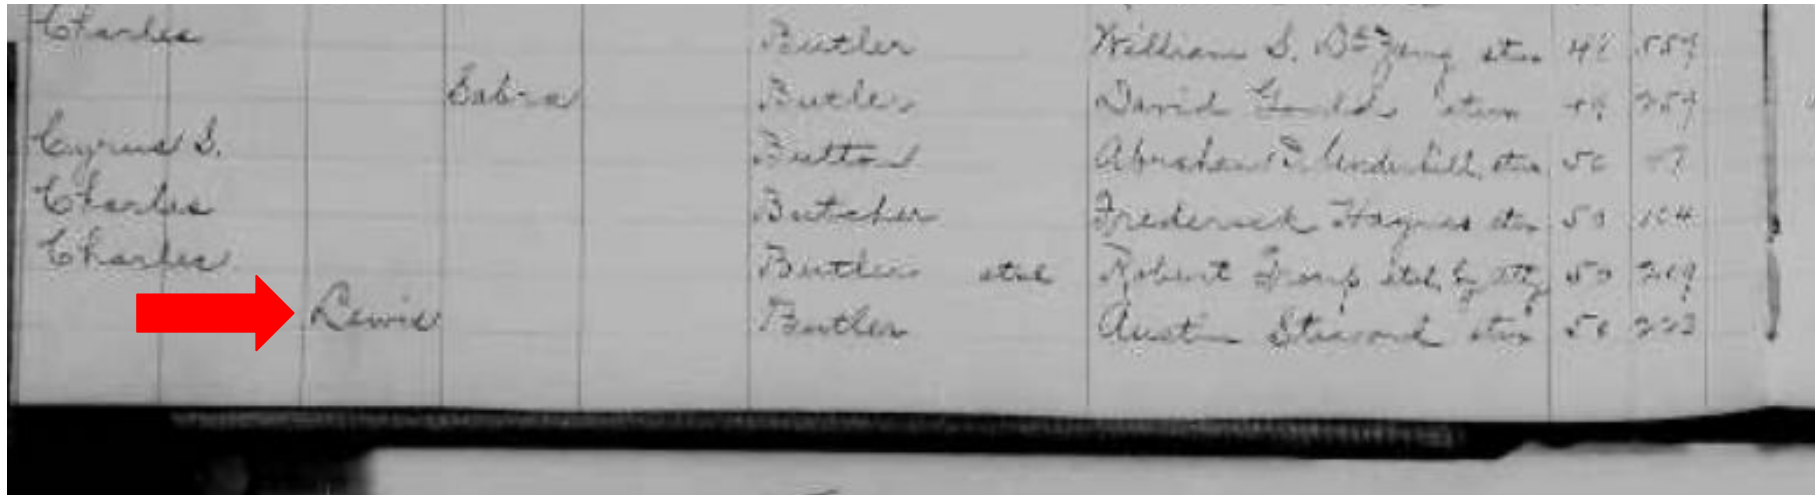 Charles Butler William S. etux 41 559
Sabra Butler David Gould etux 259
Cyrus S. Button Abraham Underhill, etux 50
Charles Butcher Frederick Haynes etux 50 104
Charles Butler etal Robert etal, by atty 50 219
Lewis Butler Austin Steward etux 50 223